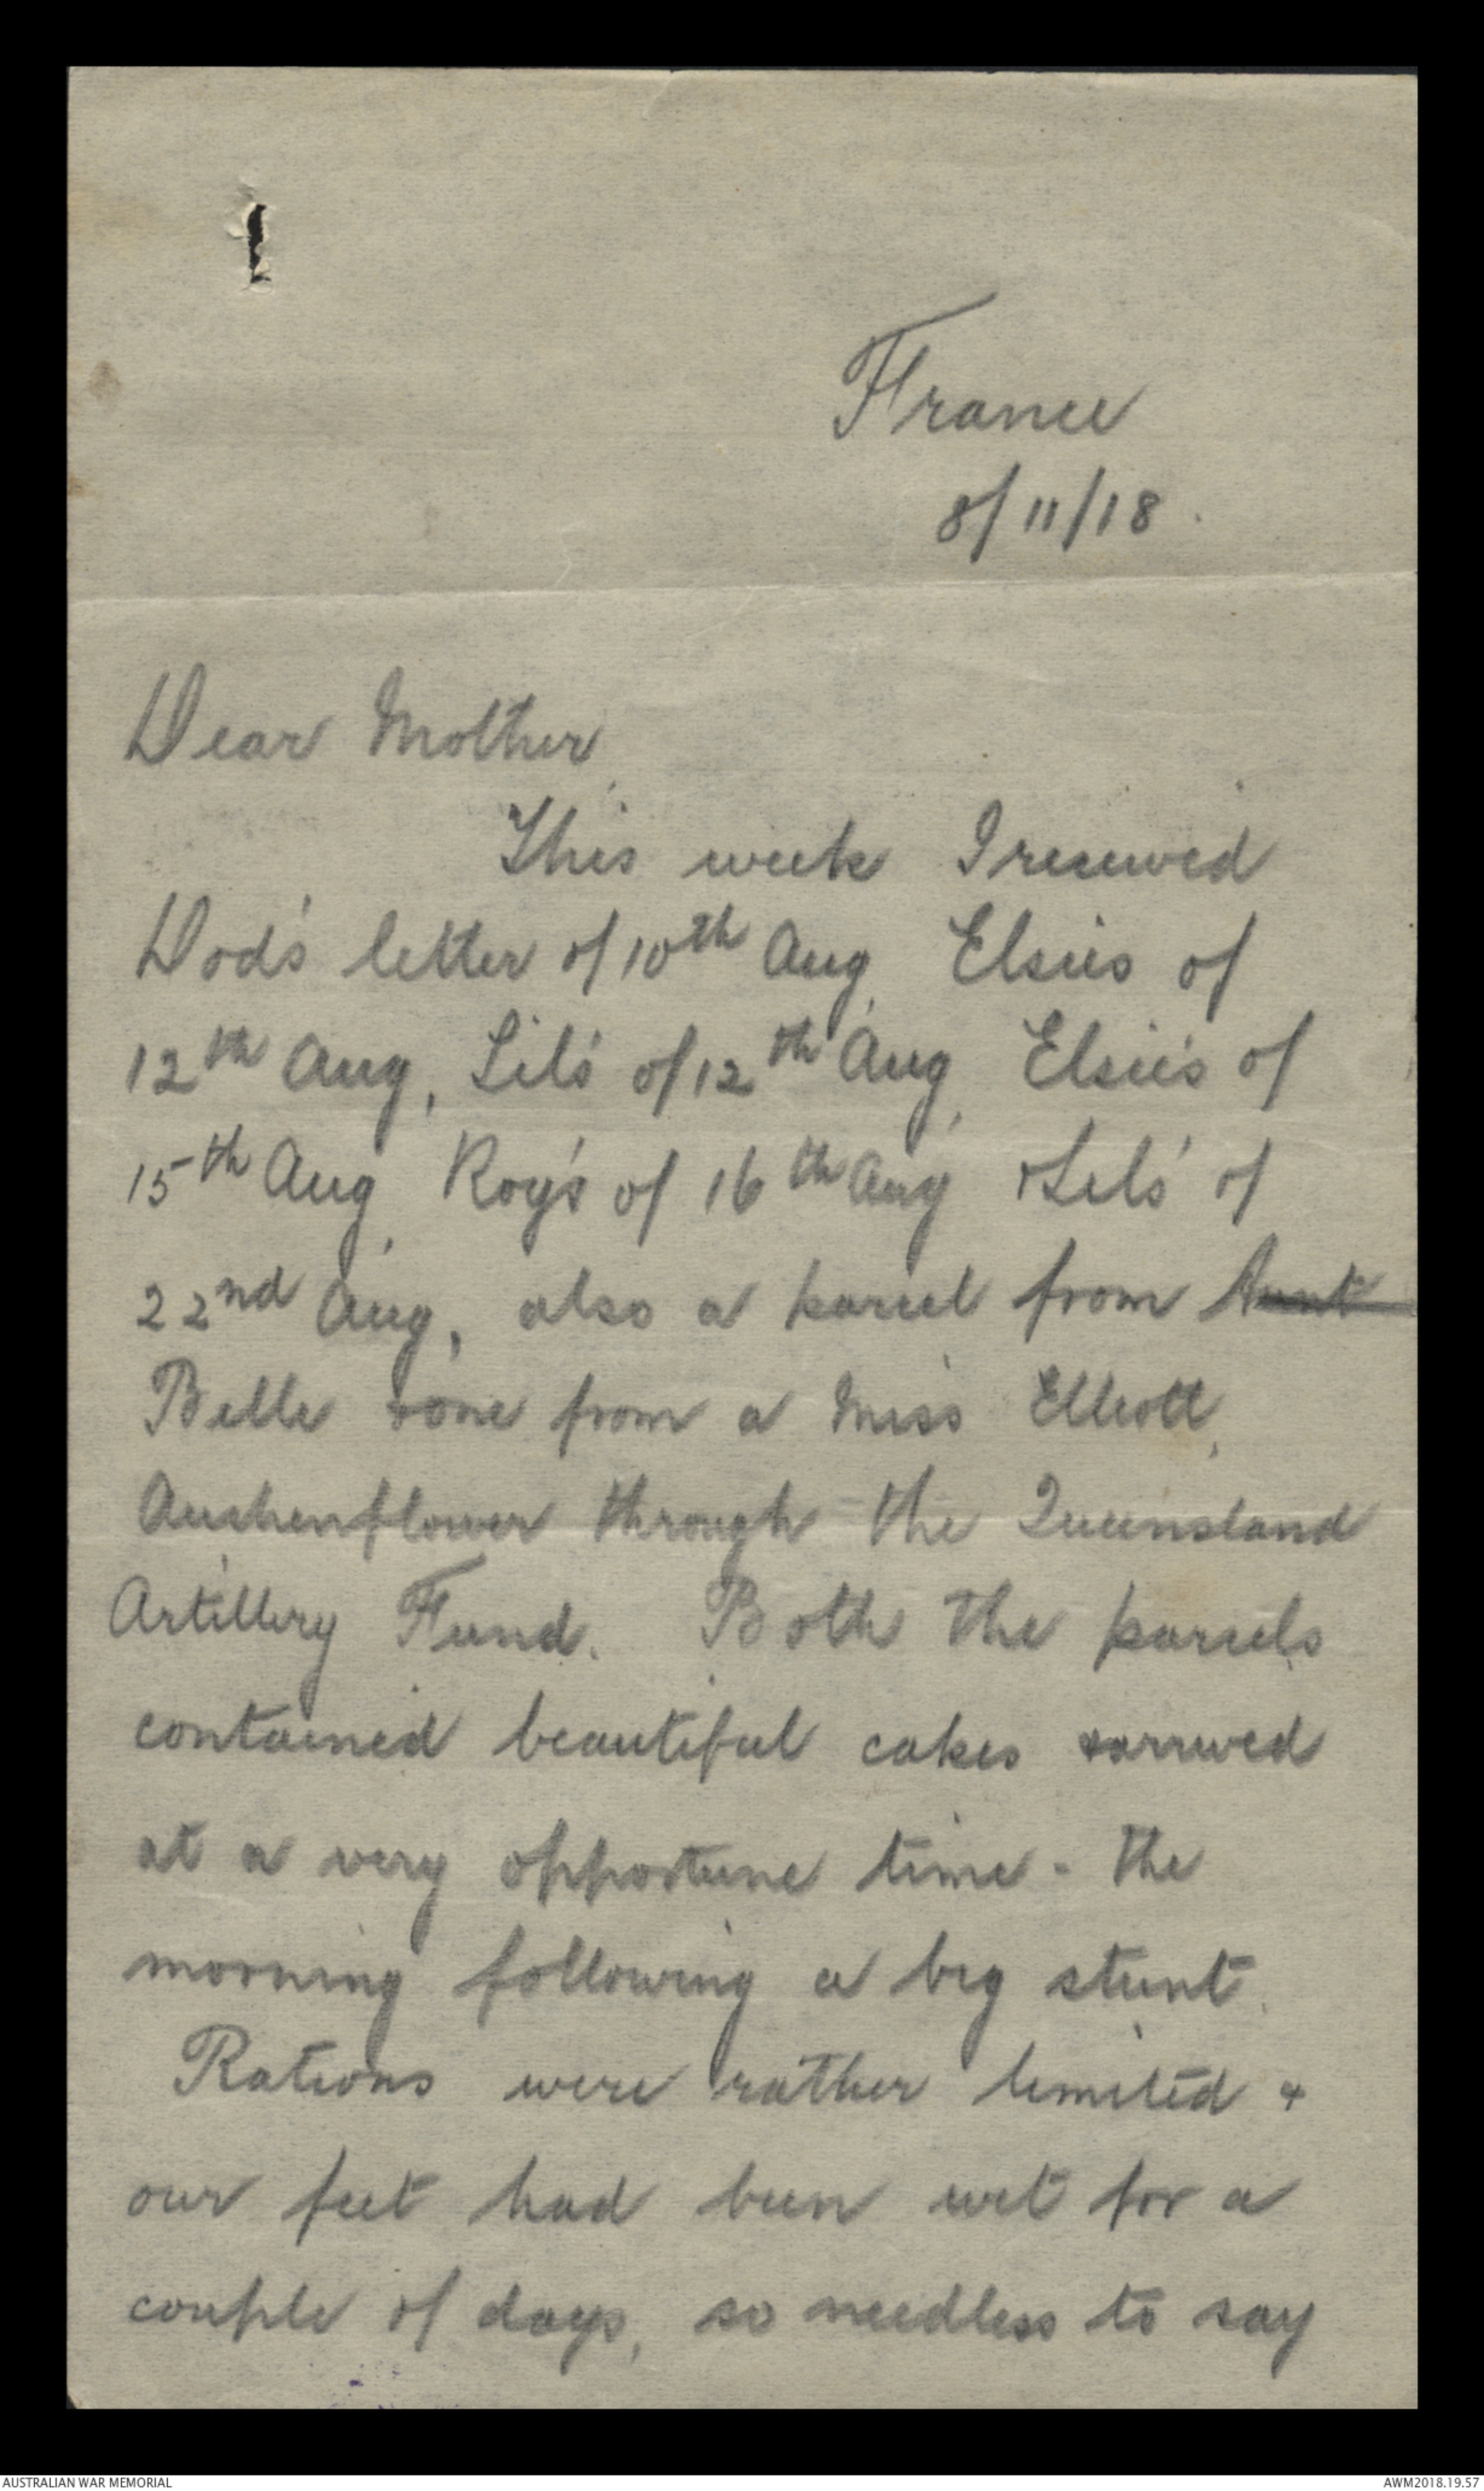 France
8/11/18.
Dear Mother,
This week I received
Dod's letter of 10th Aug, Elsie's of
12th Aug, Lil's of 12th Aug, Elsie's of
15th Aug, Roy's of 16th Aug & Lil's of
22nd Aug, also a parcel from Aunt
Belle & one from a Miss Elliott,
Auchenflower through the Queensland
Artillery Fund. Both the parcels
contained beautiful cakes & arrived
at a very opportune time - the
morning following a big stunt.
Rations were rather limited &
our feet had been wet for a
couple of days, so needless to say
AUSTRALIAN WAR MEMORIAL
AWM2018.19.57